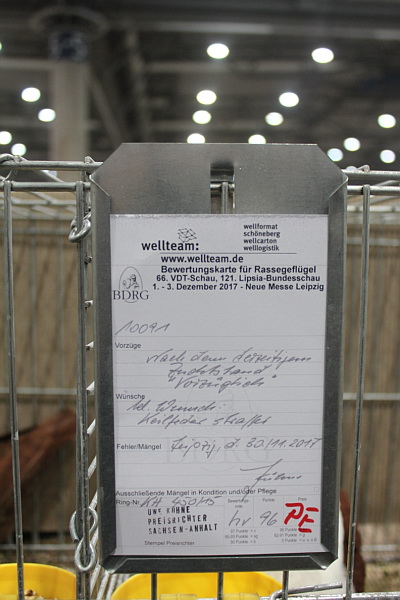 wellteam:
wellformat
schöneberg
wellcarton
welllogistik
www.wellteam.de
Bewertungskarte für Rassegeflügel
66. VDT-Schau, 121. Lipsia-Bundesschau
1. - 3. Dezember 2017 - Neue Messe Leipzig
BDRG
10091
Vorzüge
Nach dem derzeitigen
Zuchtstand
"Vorzüglich"
Wünsche
kl. Wunsch:
Keilfeder straffer
Fehler/Mängel
Leipzig, d. 30.11.2017
Ausschließende Mängel in Kondition und/oder Pflege
Ring-Nr. KA 450/15
UWE KÜHNE
PREISRICHTER
SACHSEN-ANHALT
Stempel Preisrichter
Punkte
Preis
hv 96 PE